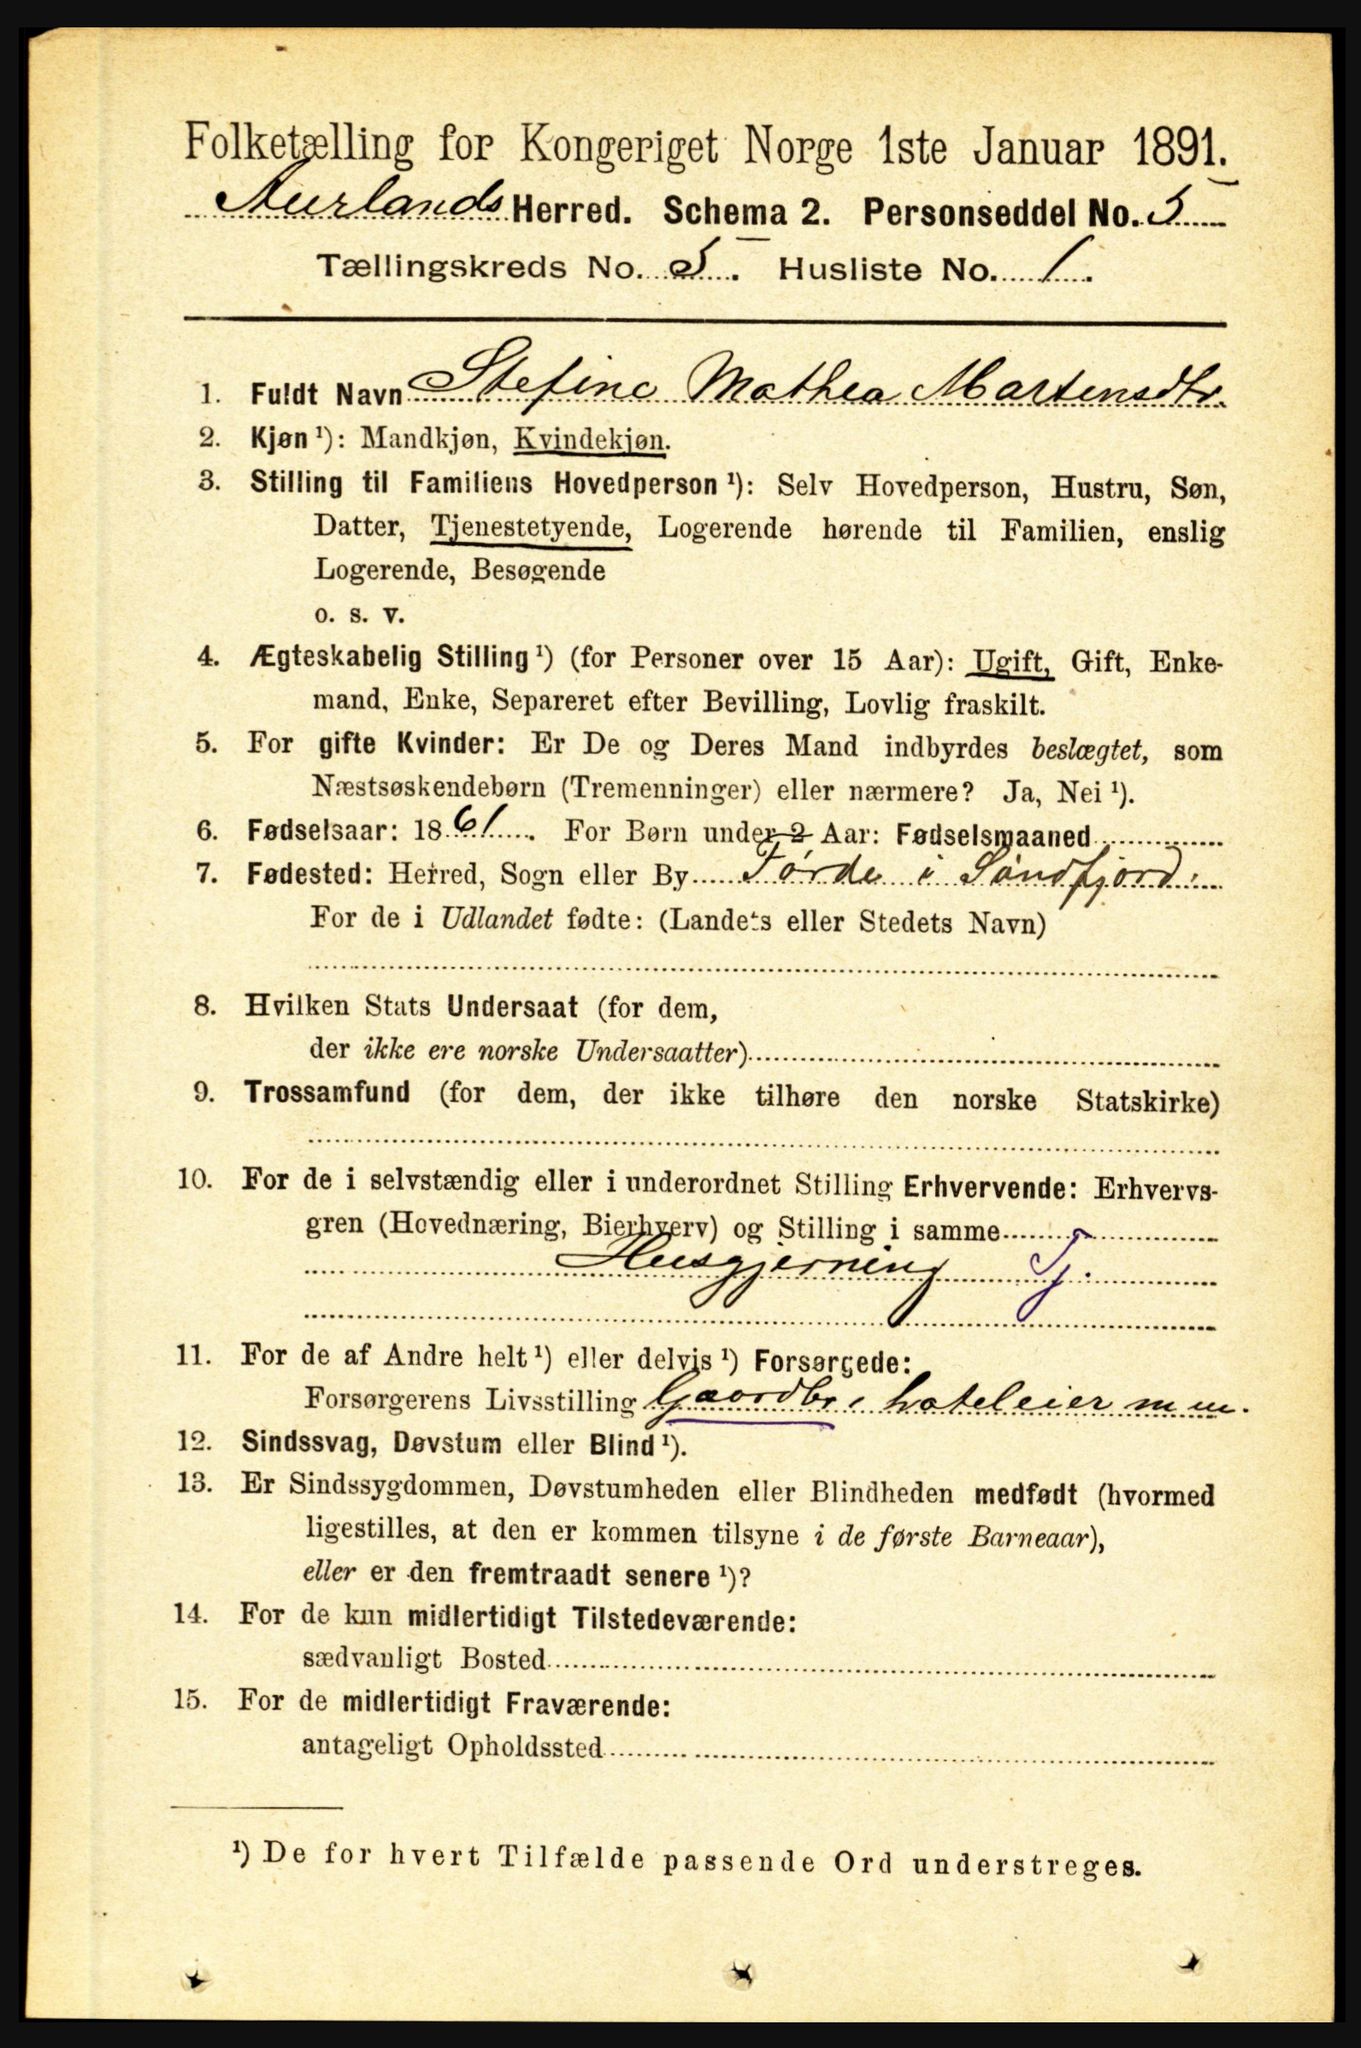 Folketælling for Kongeriget Norge 1ste Januar 1891.
Aurlands Herred. Schema 2. Personseddel No. 5
Tællingskreds No. 5. Husliste No. 1.
1. Fuldt Navn Stefine Mathea Martensdtr.
2. Kjøn ¹): Mandkjøn, Kvindekjøn.
3. Stilling til Familiens Hovedperson ¹): Selv Hovedperson, Hustru, Søn,
Datter, Tjenestetyende, Logerende hørende til Familien, enslig
Logerende, Besøgende
o. s. v.
4. Ægteskabelig Stilling ¹) (for Personer over 15 Aar): Ugift, Gift, Enke-
mand, Enke, Separeret efter Bevilling, Lovlig fraskilt.
5. For gifte Kvinder: Er De og Deres Mand indbyrdes beslægtet, som
Næstsøskendebørn (Tremenninger) eller nærmere? Ja, Nei ¹).
6. Fødselsaar: 1861. For Børn under 2 Aar: Fødselsmaaned
7. Fødested: Herred, Sogn eller By Førde i Søndfjord.
For de i Udlandet fødte: (Landets eller Stedets Navn)
8. Hvilken Stats Undersaat (for dem,
der ikke ere norske Undersaatter)
9. Trossamfund (for dem, der ikke tilhøre den norske Statskirke)
10. For de i selvstændig eller i underordnet Stilling Erhvervende: Erhvervs-
gren (Hovednæring, Bierhverv) og Stilling i samme
Husgjerning Tj.
11. For de af Andre helt ¹) eller delvis ¹) Forsørgede:
Forsørgerens Livsstilling Gaardbr, hoteleier m m.
12. Sindssvag, Døvstum eller Blind ¹).
13. Er Sindssygdommen, Døvstumheden eller Blindheden medfødt (hvormed
ligestilles, at den er kommen tilsyne i de første Barneaar),
eller er den fremtraadt senere ¹)?
14. For de kun midlertidigt Tilstedeværende:
sædvanligt Bosted
15. For de midlertidigt Fraværende:
antageligt Opholdssted
¹) De for hvert Tilfælde passende Ord understreges.